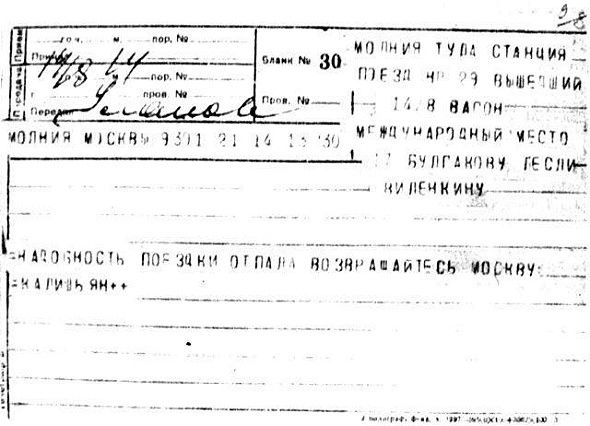 9/8
го ч. м. пор. №
Прием
14/8 14
ч. м. пор. №
г. пров. №
Передал
Передача Прием
Бланк № 30
Пров. №
МОЛНИЯ ТУЛА СТАНЦИЯ
ПОЕЗД НР 29 ВЫШЕДШИЙ
14.8 ВАГОН
МЕЖДУНАРОДНЫЙ МЕСТО
17 БУЛГАКОВУ ГЕСЛИ
ВИЛЕНКИНУ
МОЛНИЯ МОСКВЫ 9301 21 14 13 30
=НАДОБНОСТЬ ПОЕЗДКИ ОТПАЛА ВОЗВРАЩАЙТЕСЬ МОСКВУ
=КАЛИШЬЯН++